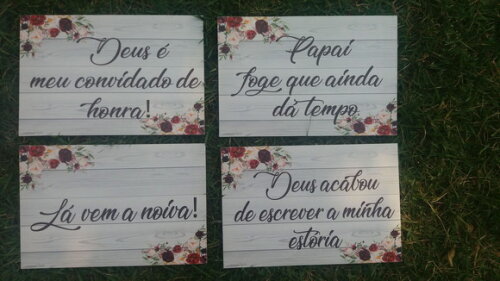 Deus é
meu convidado de
honra!
Papai
foge que ainda
dá tempo
Lá vem a noiva!
Deus acabou
de escrever a minha
estória